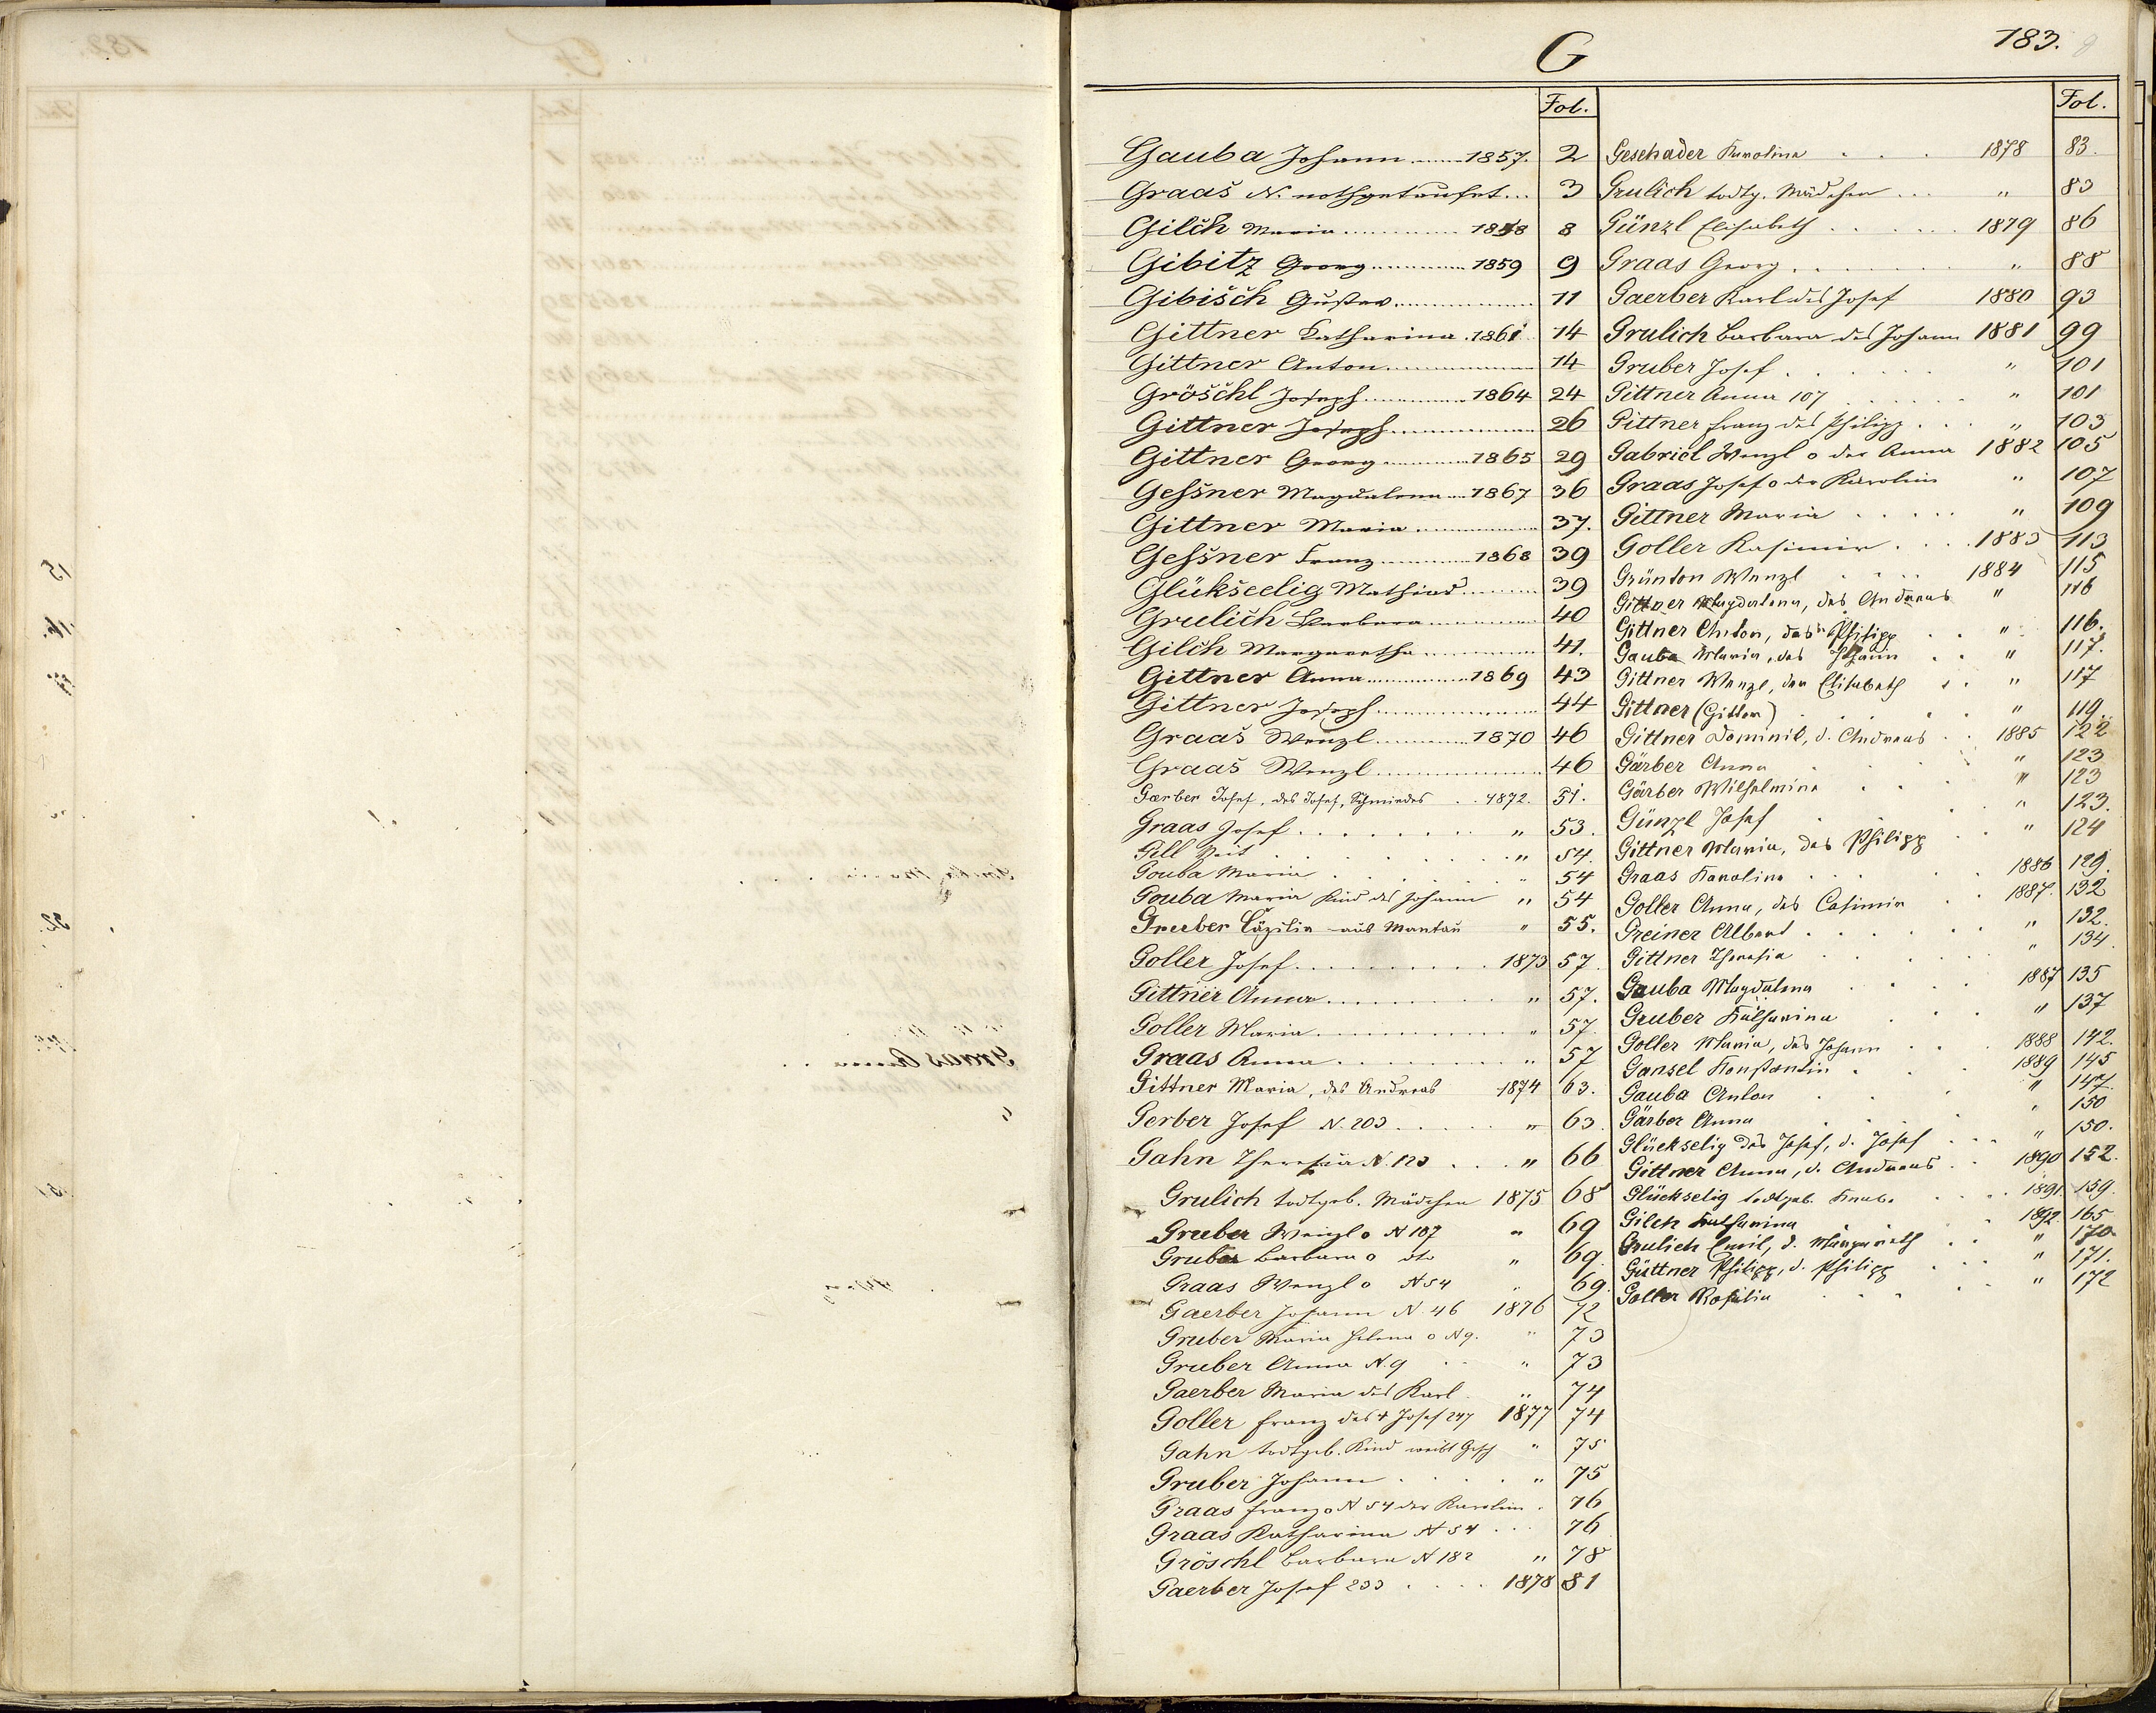 183.
G
Fol.
Gauba Johann 1857. 2
Graas N. nothgetauft 3
Gilch Maria 1858 8
Gibitz Georg 1859 9
Gibisch Gustav 11
Gittner Katharina 1861 14
Gittner Anton 14
Gröschl Joseph 1864 24
Gittner Joseph 26
Gittner Georg 1865 29
Geßner Magdalena 1867 36
Gittner Maria 37.
Geßner Franz 1868 39
Glükseelig Mathias 39
Grulich Barbara 40
Gilch Margaretha 41.
Gittner Anna 1869 43
Gittner Joseph 44
Graas Wenzl 1870 46
Graas Wenzl 46
Gærber Josef, des Josef, Schmiedes 1872. 51.
Graas Josef " 53.
Gell Veit " 54.
Gouba Maria " 54
Gouba Maria Kind des Johann " 54
Gruber Cäzilia aus Mantau " 55.
Goller Josef 1873 57.
Gittner Anna " 57.
Goller Maria " 57.
Graas Anna " 57
Gittner Maria, des Andreas 1874 63.
Gerber Josef N. 203 " 63.
Gahn Theresia N. 123 " 66
Grulich todtgeb. Mädchen 1875 68
Gruber Wenzl o N 187 " 69
Gruber Barbara o dto " 69.
Graas Wenzl o N 54 " 69.
Gaerber Johann N. 46 1876 72
Gruber Maria Helena o N 9. " 73
Gruber Anna N. 9 " 73
Gaerber Maria des Karl " 74
Goller Franz des + Josef 247 1877 74
Gahn todtgeb. Kind weibl Gesch " 75
Gruber Johann " 75
Graas Franz o N 54 der Karolina 76
Graas Katharina N 54 76
Gröschl Barbara N 182 " 78
Gaerber Josef 233 1878 81
Fol.
Geschader Karolina 1878 83.
Grulich todtg. Mädchen " 83
Günzl Elisabeth 1879 86
Graas Georg " 88
Gaerber Karl des Josef 1880 93
Grulich Barbara des Johann 1881 99
Gruber Josef " 101
Gittner Anna 107 " 101
Gittner Franz des Philipp " 103
Gabriel Wenzl o der Anna 1882 105
Graas Josef o der Karolina " 107
Gittner Maria " 109
Goller Kasimir 1883 113
Grünton Wenzl 1884 115
Gittner Magdalena, des Andreas " 116
Gittner Anton, des Philipp " 116.
Gauba Maria, des Johann " 117.
Gittner Wenzl, der Elisabeth " 117
Gittner (Gitter) " 119.
Gittner Dominik, d. Andreas 1885 122
Gärber Anna " 123
Gärber Wilhelmine " 123
Günzl Josef " 123.
Gittner Maria, des Philipp " 124
Graas Karolina 1886 129.
Goller Anna, des Casimir 1887. 132
Greiner Albert " 132.
Gittner Theresia " 134.
Gauba Magdalena 1887 135
Gruber Katharina " 137
Goller Maria, des Johann 1888 142.
Gansel Konstantin 1889 145
Gauba Anton " 147.
Gärber Anna " 150
Glückselig des Josef, d. Josef " 150.
Gittner Anna, d. Andreas 1890 152.
Glückselig todtgeb. Knabe 1891. 159.
Gilch Katharina 1892. 165
Grulich Emil, d. Margareth " 170
Güttner Philipp, d. Philipp " 171.
Goller Rosalia " 172